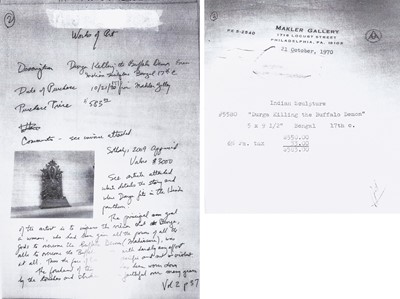 ②
Works of Art
Description Durga Killing the Buffalo Demon from
Indian Sculpture Bengal 17th C
Date of Purchase 10/21/70 from Makler Gallery
Purchase Price $583.00
Comments - see invoice attached
Sotheby's 2009 Appraisal
Value $3000
See article attached
which details the story and
where Durga fits in the Hindu
pantheon
The principal goal
of the artist is to impress the victim that Durga,
a woman, who had been given all the power of all the
gods to overcome the Buffalo Demon (Mahisasura), was
able to overcome the
at all. Thus the face
The forehead of the has been worn down
by the touches and of faithful over many years
Vol 2 p 57
③
MAKLER GALLERY
1716 LOCUST STREET
PHILADELPHIA, PA. 19103
PE 5-2540
21 October, 1970
Indian Sculpture
#9580 "Durga Killing the Buffalo Demon"
5 x 9 1/2" Bengal 17th c.
$550.00
6% Pa. tax 33.00
$583.00